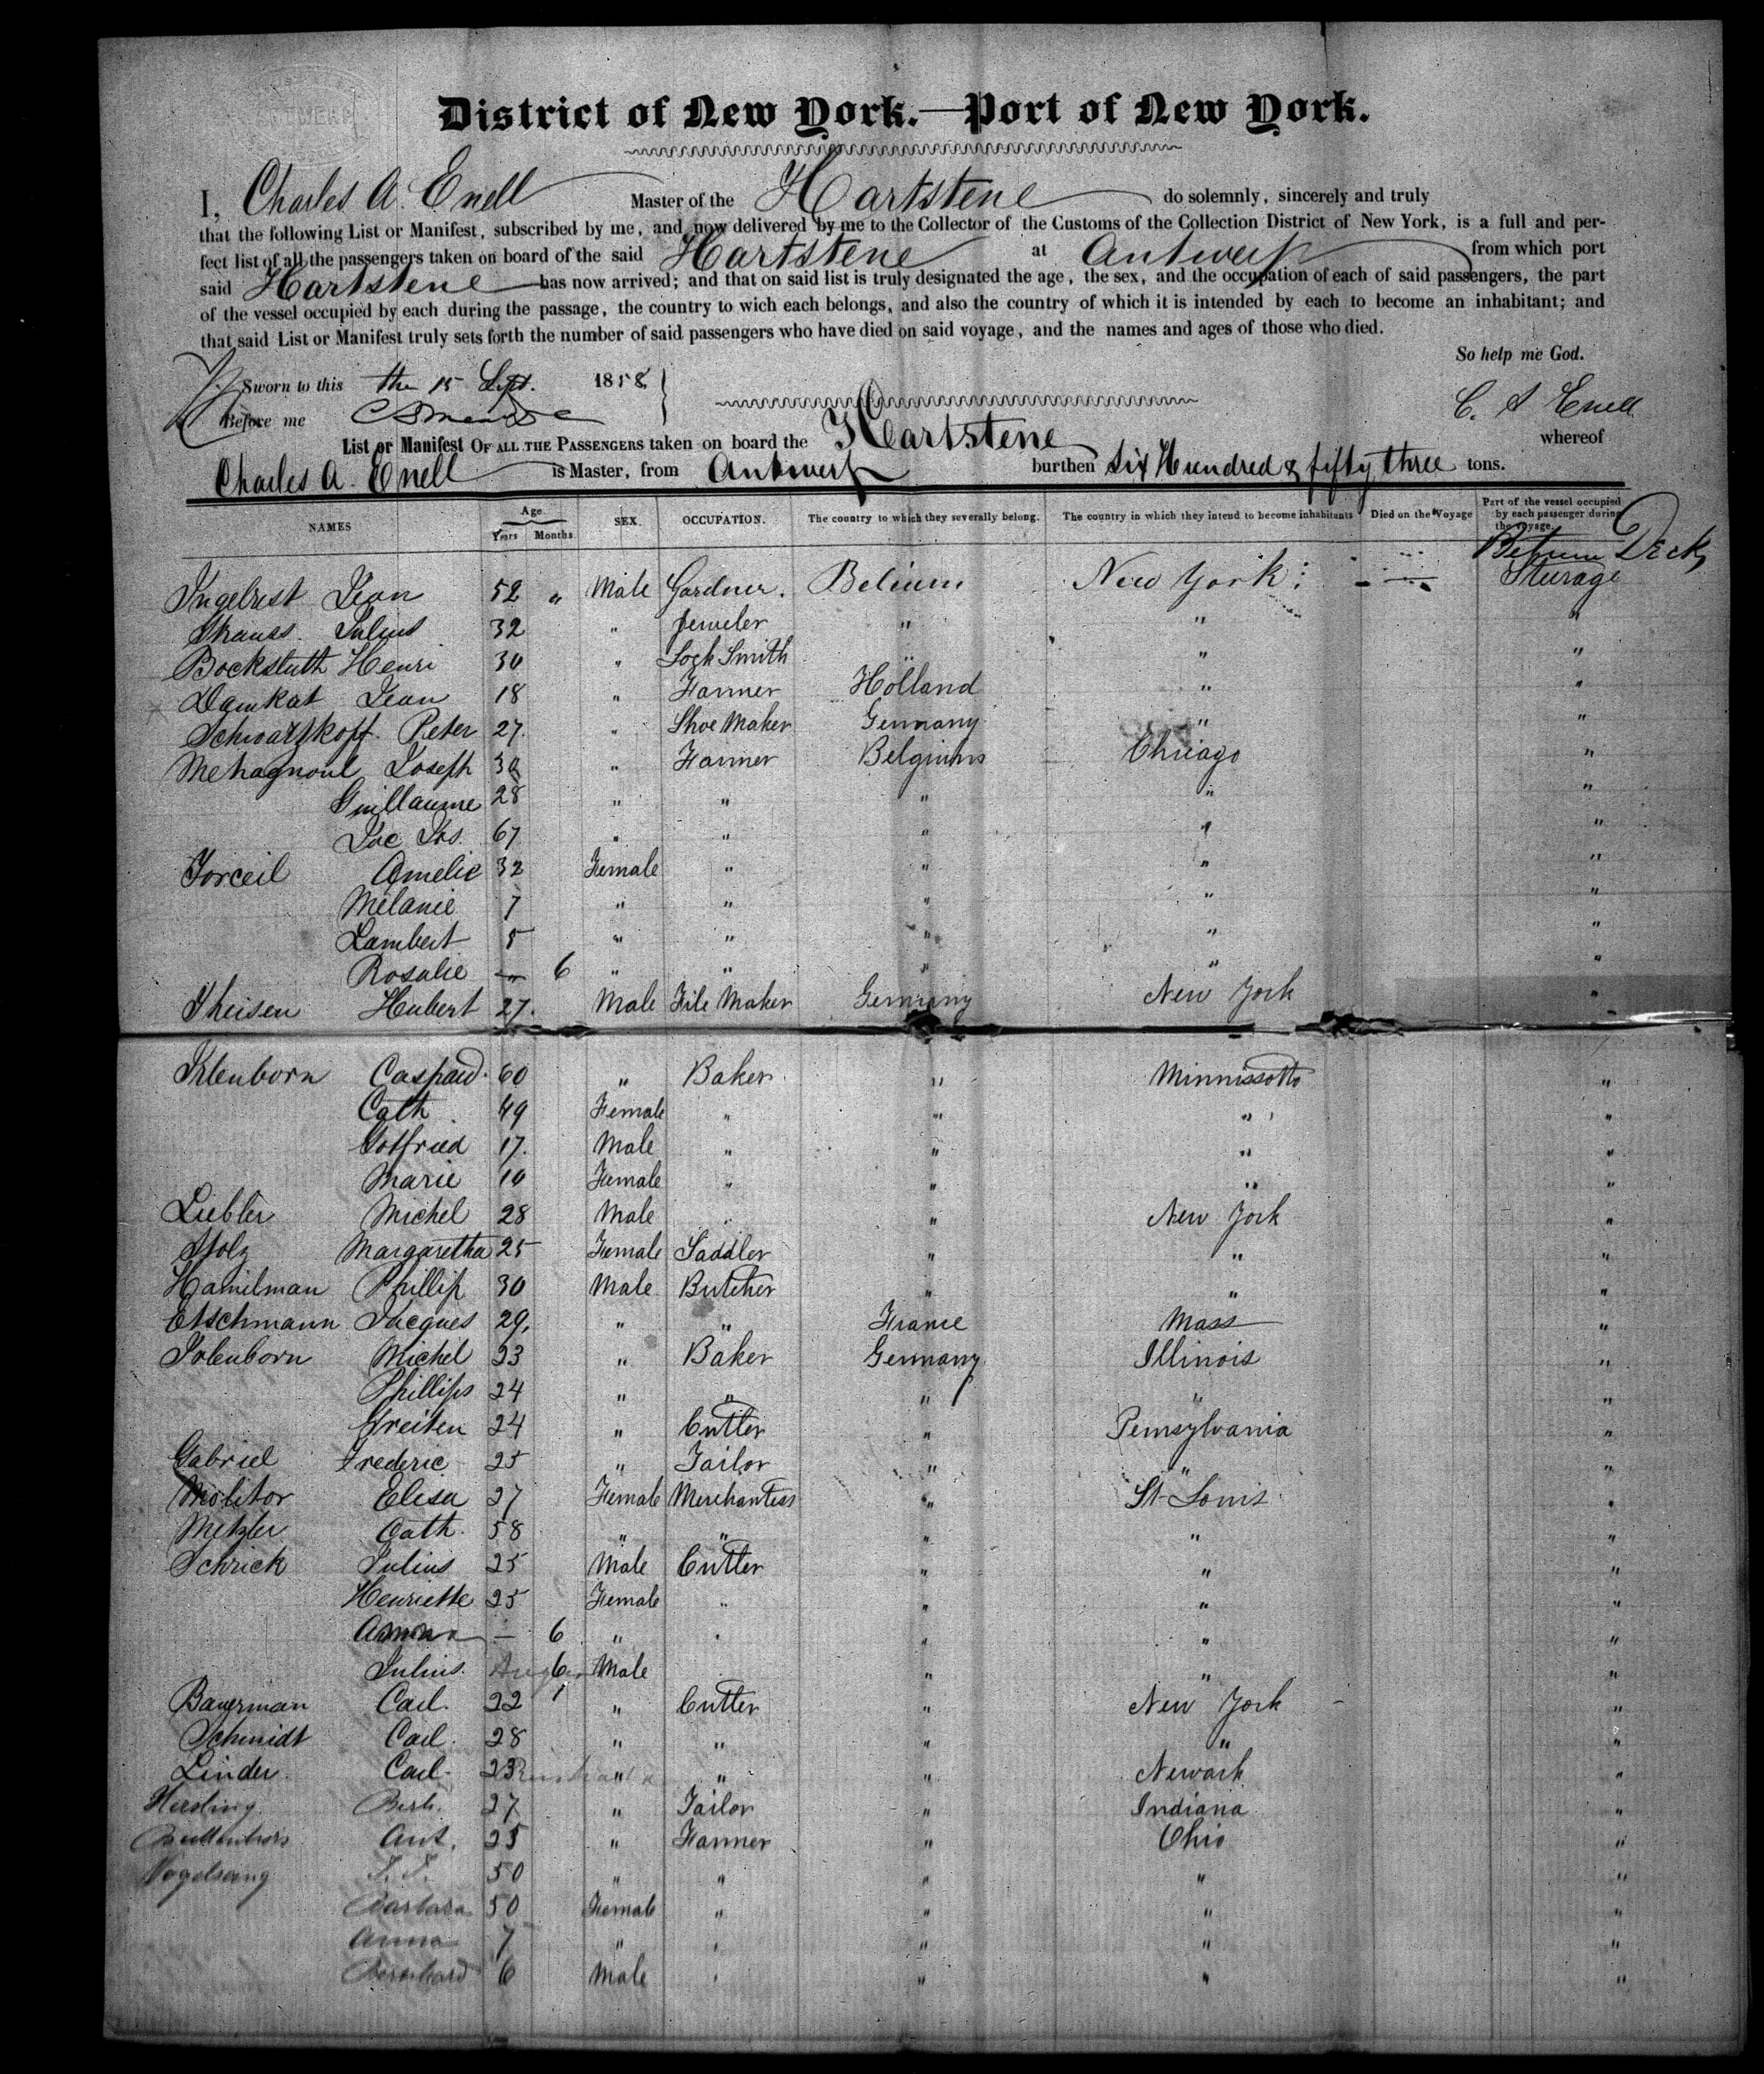 ANTWERP
District of New York.—Port of New York.
I, Charles A. Enell Master of the Hartstene do solemnly, sincerely and truly
that the following List or Manifest, subscribed by me, and now delivered by me to the Collector of the Customs of the Collection District of New York, is a full and per-
fect list of all the passengers taken on board of the said Hartstene at Antwerp from which port
said Hartstene has now arrived; and that on said list is truly designated the age, the sex, and the occupation of each of said passengers, the part
of the vessel occupied by each during the passage, the country to wich each belongs, and also the country of which it is intended by each to become an inhabitant; and
that said List or Manifest truly sets forth the number of said passengers who have died on said voyage, and the names and ages of those who died.
So help me God.
Sworn to this the 15 Sept. 1858
Before me
C. A Enell
List or Manifest OF ALL THE PASSENGERS taken on board the Hartstene whereof
Charles A. Enell is Master, from Antwerp burthen Six Hundred & fifty three tons.
NAMES Age. Years Months SEX. OCCUPATION. The country to which they severally belong. The country in which they intend to become inhabitants Died on the Voyage Part of the vessel occupied by each passenger during the voyage.
Betwen Deck
Ingelrest Jean 52 " Male Gardner. Belium New York Steurage
Strauss. Julius 32 " Jeweler " " "
Bockstuth Henri 30 " Lock Smith " " "
Damkat Jean 18 " Farmer Holland " "
Schwarzkopf Peter 27. " Shoe Maker Germany " "
Mehagnoul Joseph 30 " Farmer Belgiums Chicago "
Guillaume 28 " " " " "
Jac Jos. 67 " " " " "
Torceil Amelie 32 Female " " " "
Mélanie 7 " " " " "
Lambert 5 " " " " "
Rosalie — 6 " " " " "
Theisen Hubert 27. Male File Maker Germany New York "
Irlenborn Caspard. 60 " Baker " Minnissotto "
Cath 49 Female " " " "
Gotfried 17. Male " " " "
Marie 10 Female " " " "
Liebler Michel 28 Male " " New York "
Stolz Margaretha 25 Female Saddler " " "
Hamilman Phillip 30 Male Butcher " " "
Etschmann Jacques 29, " " France Mass "
Irlenborn Michel 23 " Baker Germany Illinois "
Phillips 24 " " " " "
Greiten 24 " Cutler " Pensylvania "
Gabriel Frederic 25 " Tailor " " "
Molitor Elisa 27 Female Merchantess " St Louis "
Metzler Cath. 58 " " " " "
Schrick Julius 25 Male Cutler " " "
Henriette 25 Female " " " "
— 6 " " " " "
Julius. 6 Male " " "
Bauerman Carl. 22 " Cutler " New York "
Schmidt Carl. 28 " " " " "
Linder. Carl. 23 " " " Newark "
Hersling Berh. 27 " Tailor " Indiana "
Ant. 25 " Farmer " Ohio "
Vogelsang 50 " " " " "
Barbara 50 Female " " " "
Anna 7 " " " " "
Bernhard 6 Male " " " "